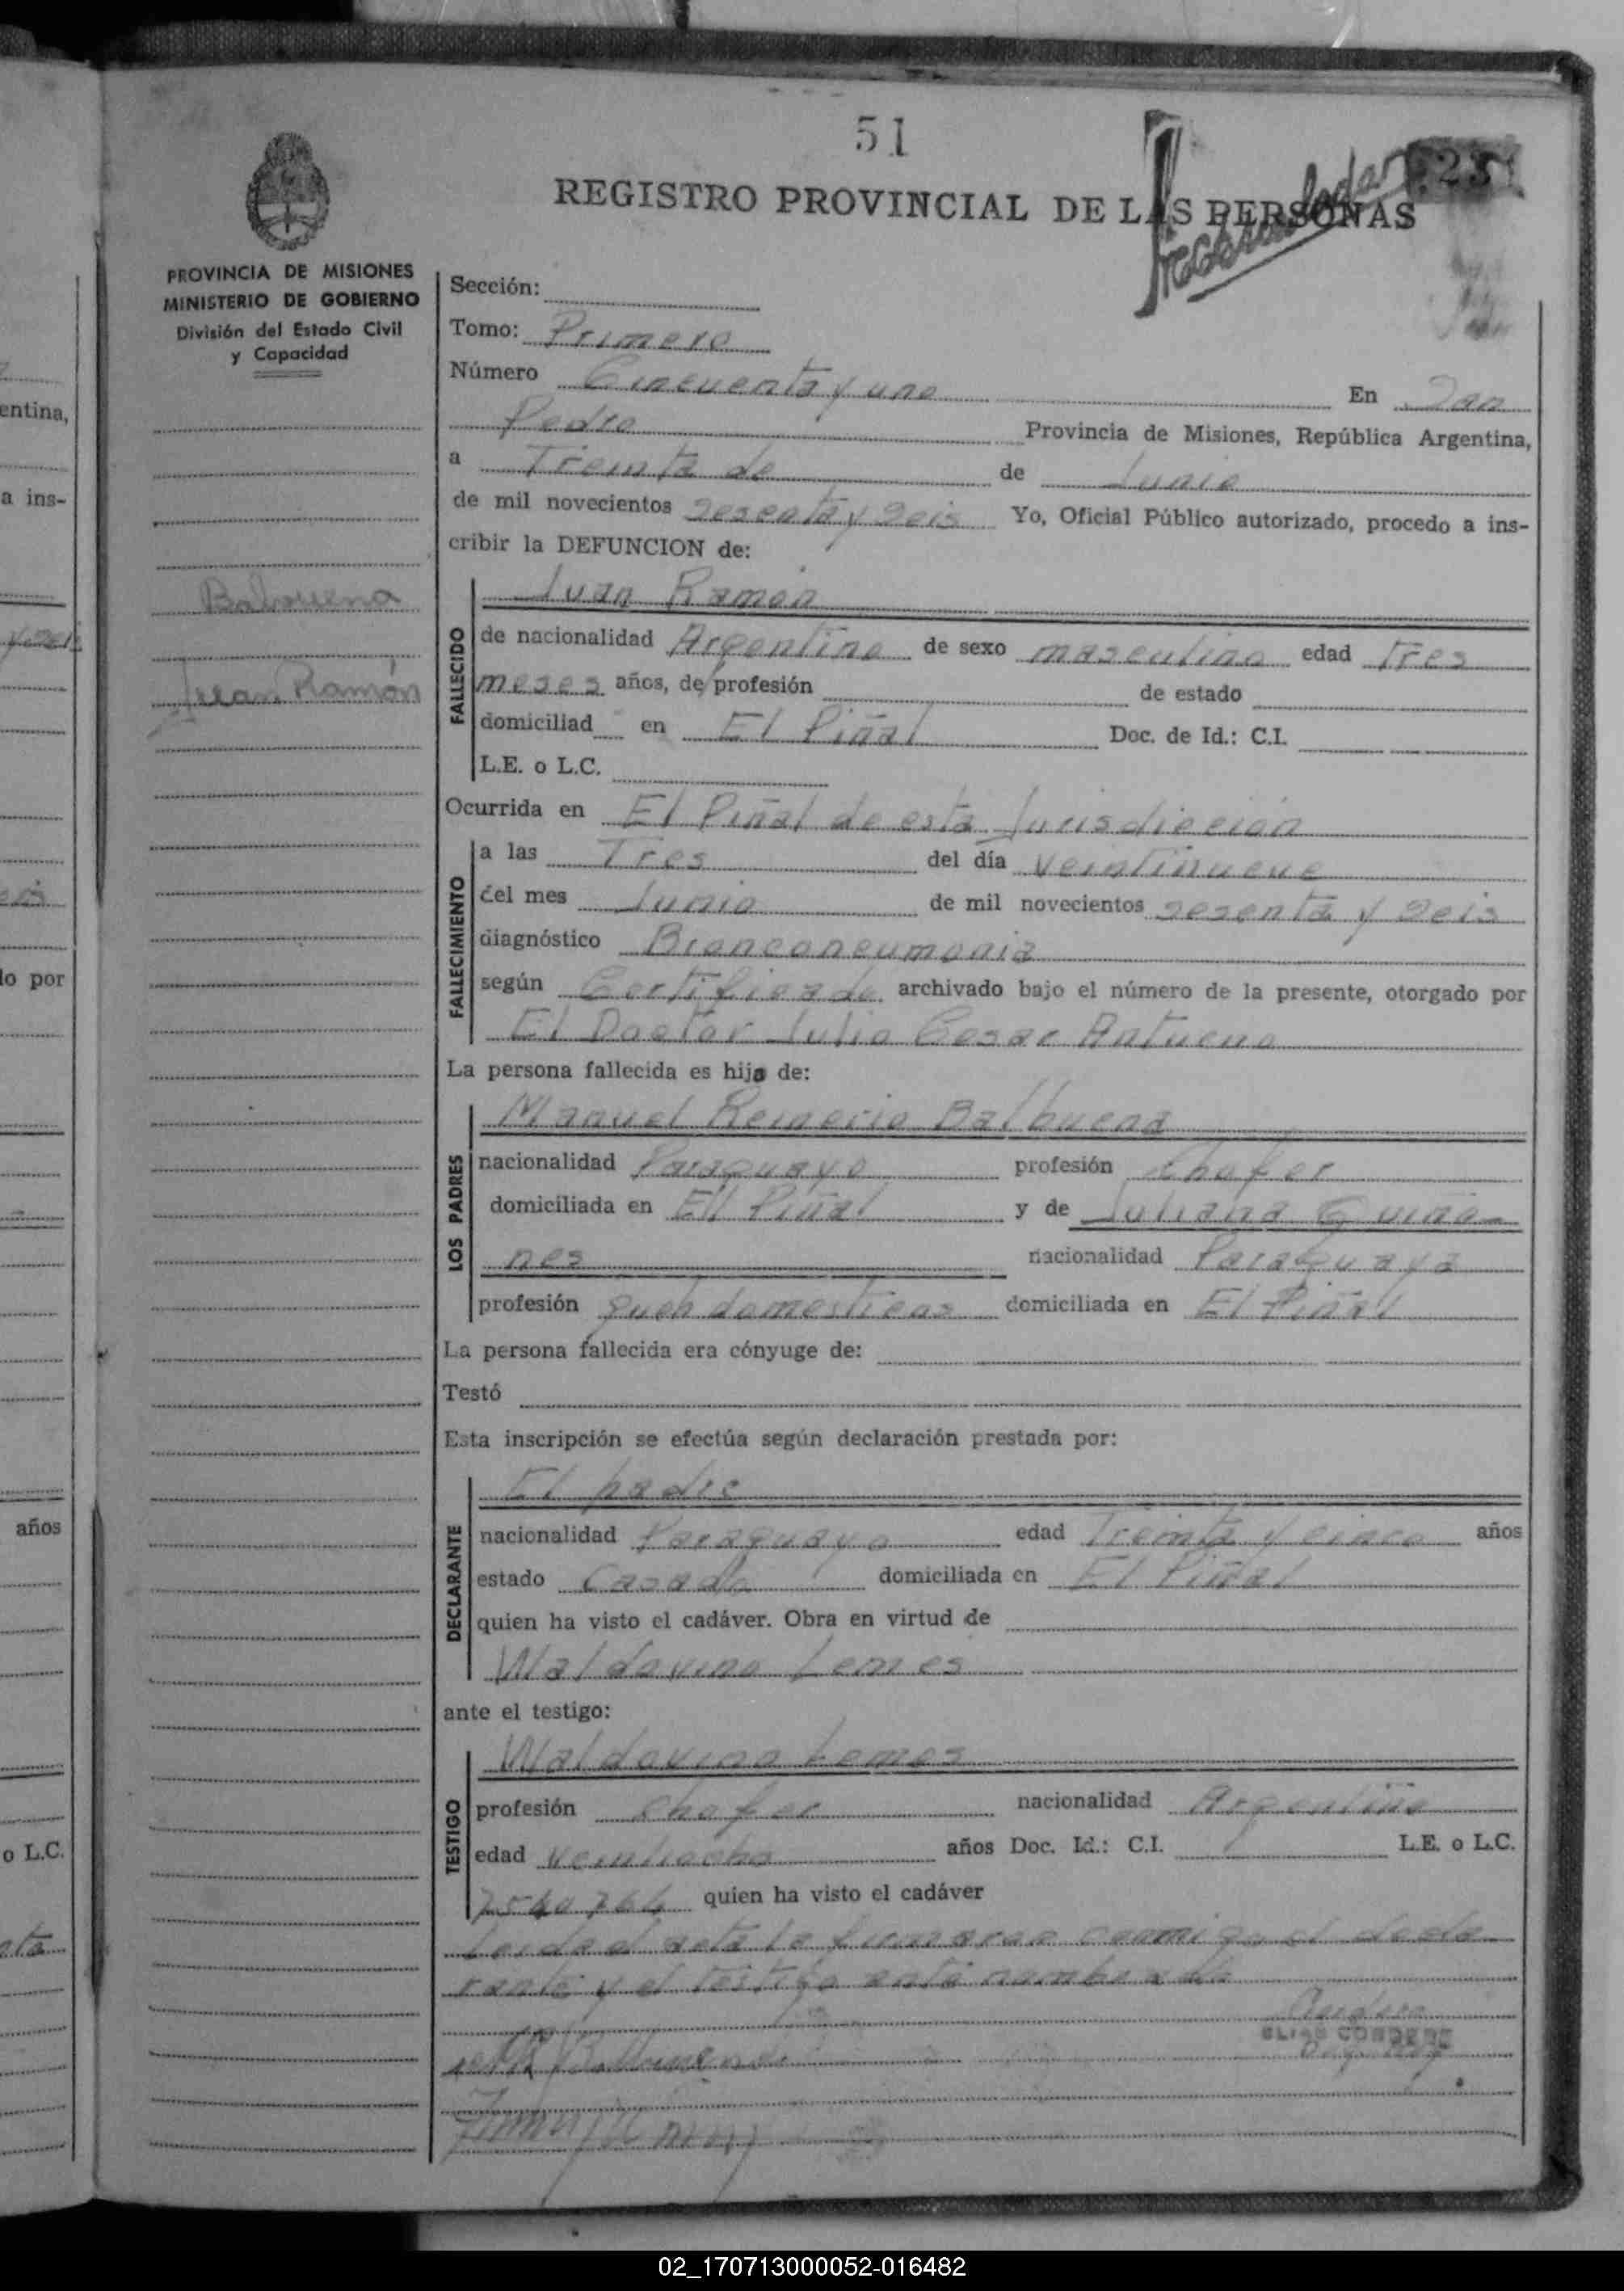 51
REGISTRO PROVINCIAL DE LAS PERSONAS
PROVINCIA DE MISIONES
MINISTERIO DE GOBIERNO
División del Estado Civil
y Capacidad
Balbuena
Juan Ramón
Sección:
Tomo: Primero
Número Cincuenta y uno En San
Pedro Provincia de Misiones, República Argentina,
a Treinta de de Junio
de mil novecientos sesenta y seis Yo, Oficial Público autorizado, procedo a ins-
cribir la DEFUNCION de:
FALLECIDO
Juan Ramón
de nacionalidad Argentino de sexo masculino edad Tres
meses años, de profesión de estado
domiciliad en El Piñal Doc. de Id.: C.I.
L.E. o L.C.
Ocurrida en El Piñal de esta Jurisdicción
FALLECIMIENTO
a las Tres del día veintinueve
del mes Junio de mil novecientos sesenta y seis
diagnóstico Bronconeumonia
según Certificado archivado bajo el número de la presente, otorgado por
El Doctor Julio Cesar
La persona fallecida es hijo de:
LOS PADRES
Manuel Remerio Balbuena
nacionalidad Paraguayo profesión chofer
domiciliada en El Piñal y de Juliana Quiño-
nes nacionalidad Paraguaya
profesión domesticas domiciliada en El Piñal
La persona fallecida era cónyuge de:
Testó
Esta inscripción se efectúa según declaración prestada por:
DECLARANTE
El padre
nacionalidad Paraguayo edad Treinta y cinco años
estado Casado domiciliada en El Piñal
quien ha visto el cadáver. Obra en virtud de
Waldovino Lemes
ante el testigo:
TESTIGO
Waldovino Lemes
profesión chofer nacionalidad Argentino
edad Veintiocho años Doc. Id.: C.I. L.E. o L.C.
7540764 quien ha visto el cadáver
Leida el acta la firmaron conmigo el decla-
rante y el testigo ante nombrado
entina,
a ins-
lo por
años
o L.C.
02_170713000052-016482